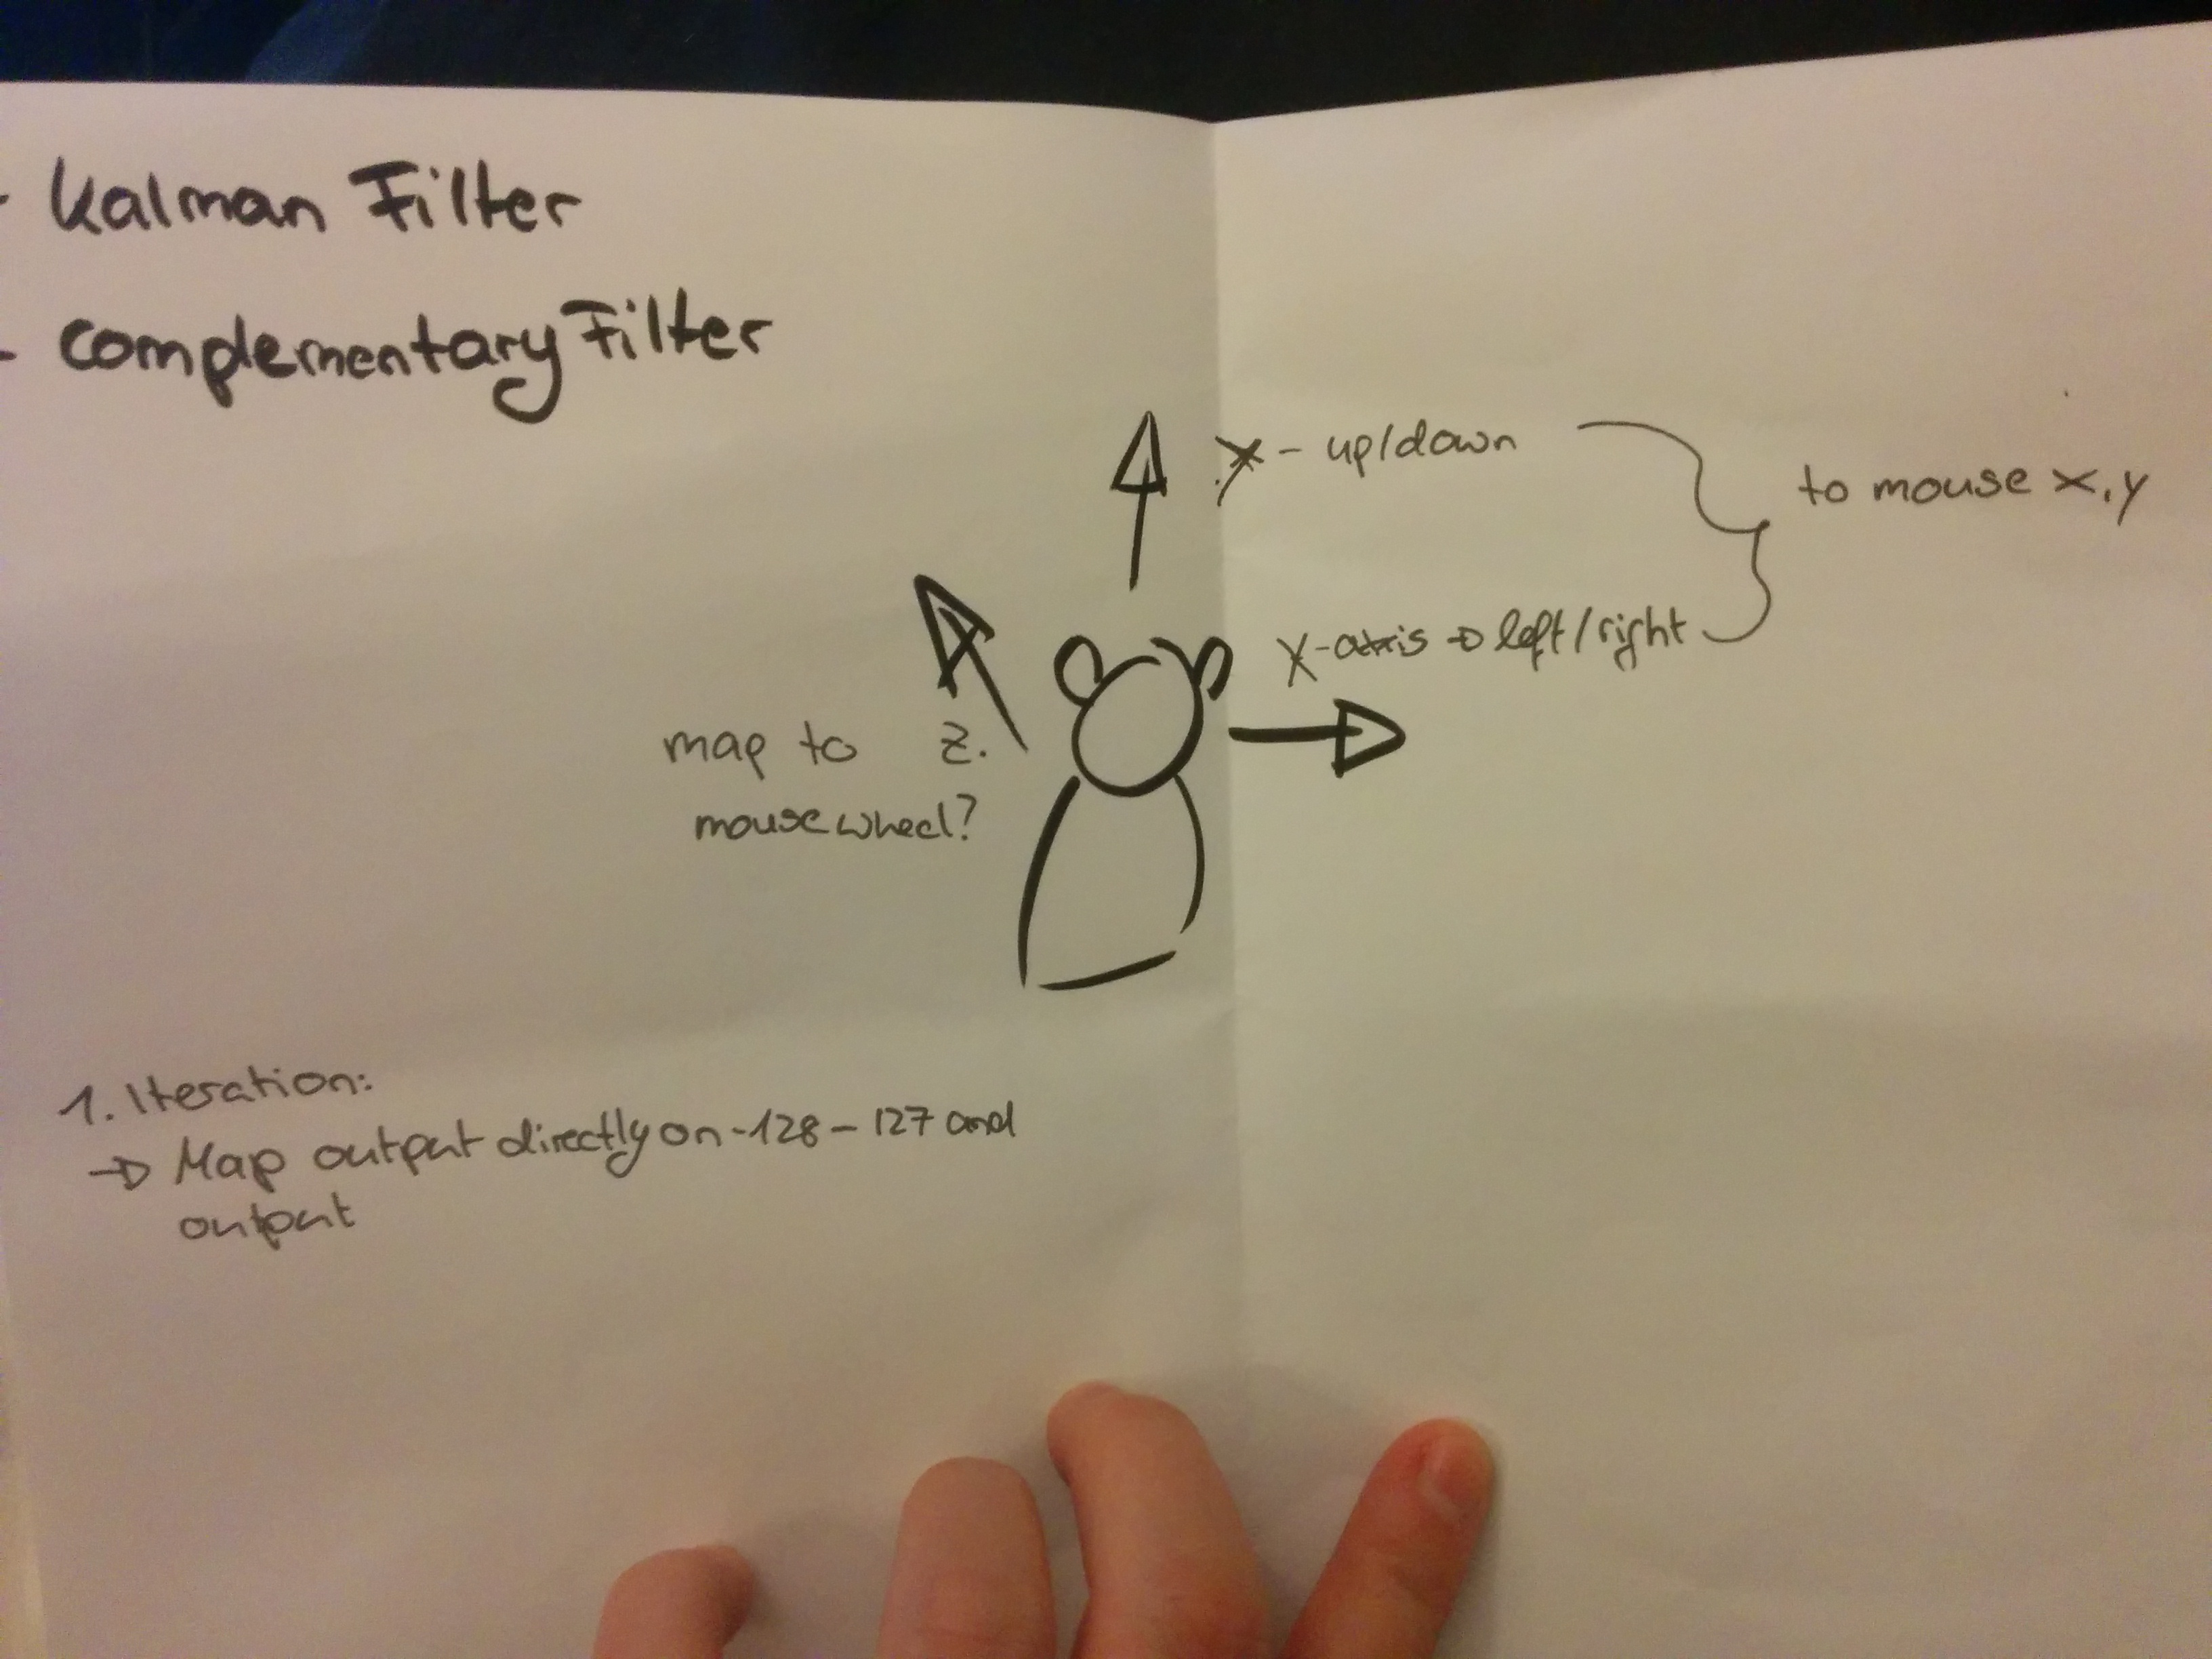 - Kalman Filter
- Complementary Filter
y - up/down
to mouse x,y
X-axis → left/right
map to z.
mousewheel?
1. Iteration:
→ Map output directly on -128 - 127 and
output